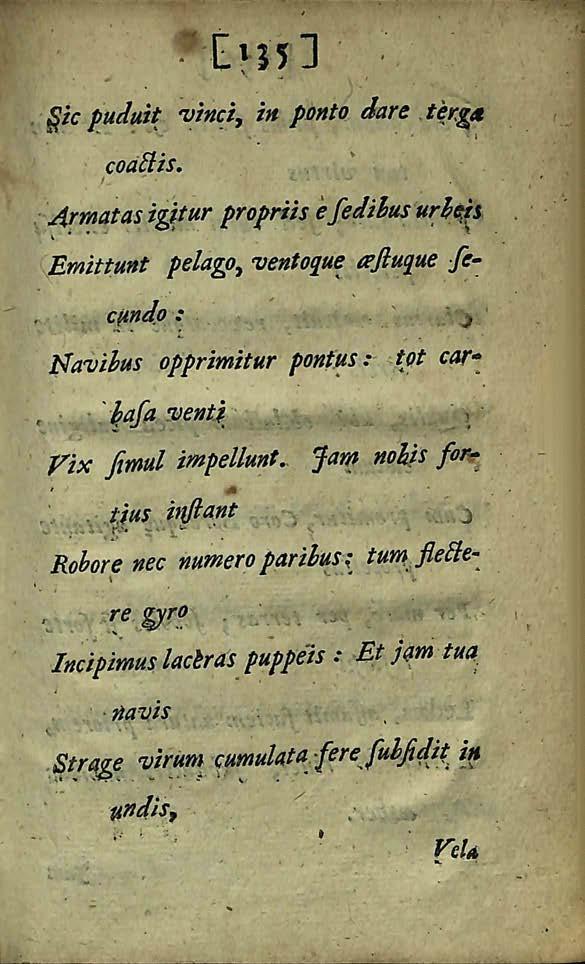 [135]
Sic puduit vinci, in ponto dare terga
coactis.
Armatas igitur propriis è ſedibus urbeis
Emittunt pelago, ventoque æſtuque ſe-
cundo :
Navibus opprimitur pontus : tot car-
baſa venti
Vix ſimul impellunt. Jam nobis for-
tius inſtant
Robore nec numero paribus ; tum flecte-
re gyro
Incipimus laceras puppeis : Et jam tua
navis
Strage virum cumulata fere ſubſidit in
undis,
Vela